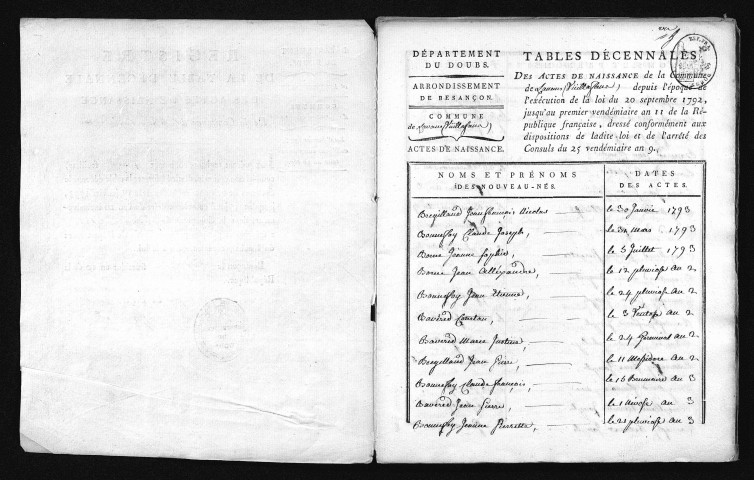 DÉPARTEMENT
DU DOUBS.
ARRONDISSEMENT
DE BESANÇON.
COMMUNE
de Lavans Vuillafans
ACTES DE NAISSANCE.
TABLES DÉCENNALES
DES ACTES DE NAISSANCE de la Commune
de Lavans Vuillafans, depuis l'époque de
l'exécution de la loi du 20 septembre 1792,
jusqu'au premier vendémiaire an 11 de la Ré-
publique française, dressé conformément aux
dispositions de ladite loi et de l'arrêté des
Consuls du 25 vendémiaire an 9.
NOMS ET PRÉNOMS
DES NOUVEAU-NÉS.
DATES
DES ACTES.
Bregilland Jean françois Nicolas le 30 Janvie 1793
Bonnefoy Claude Joseph, le 31 Mars 1793
Borne Jeanne Sophie, le 5 Juillet 1793
Borne Jean Alléxandre, le 12 pluviose an 2
Bonnefoy Jean Etienne, le 24 pluviose an 2
Bavered le 3 Ventose an 2
Bavered Marie Justine, le 24 Germinal an 2
Bregilland Jean Pierre, le 11 Messidore an 2
Bonnefoy Claude françois, le 16 Brumaire an 3
Bavered Jean Pierre, le 1 Nivose an 3
Bonnefoy Jeanne Pierrette, le 21 pluviose an 3